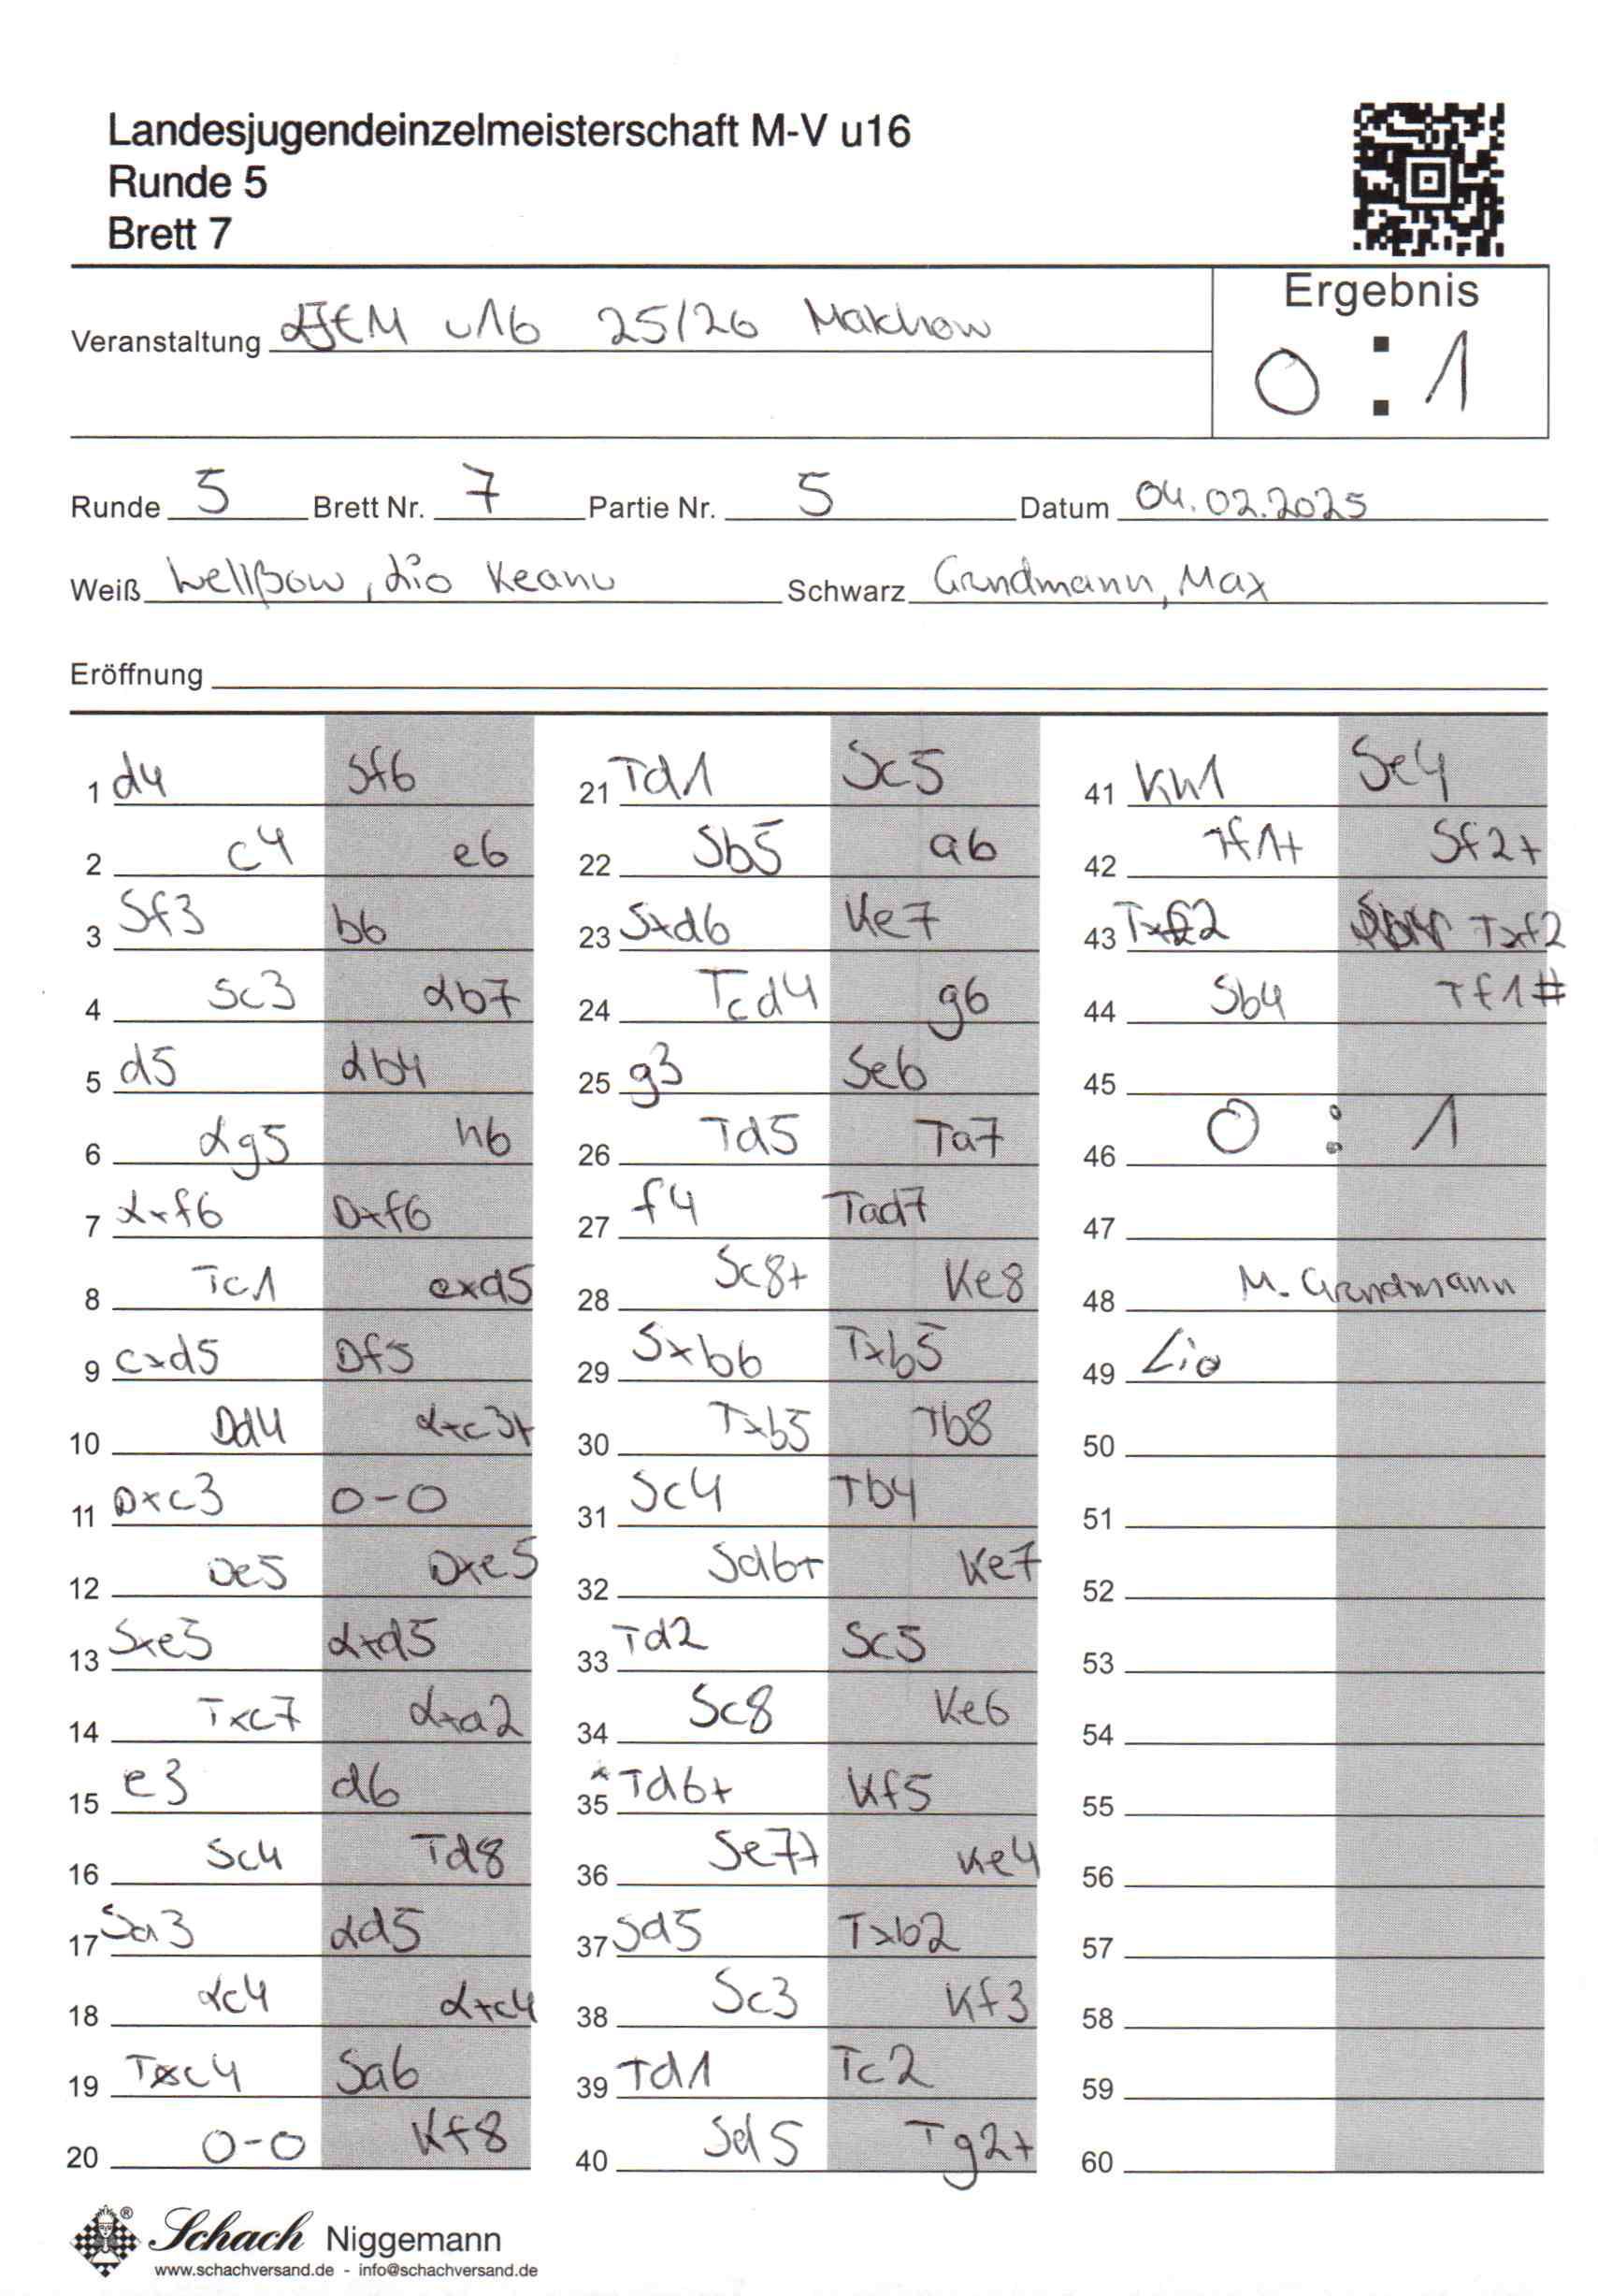 Landesjugendeinzelmeisterschaft M-V u16
Runde 5
Brett 7
Ergebnis
Veranstaltung LJEM u16 25/26 Malchow
0 : 1
Runde 5 Brett Nr. 7 Partie Nr. 5 Datum 04.02.2025
Weiß Wellßow, Lio Keanu Schwarz Grndmann, Max
Eröffnung
1 d4 Sf6 21 Td1 Sc5 41 Kh1 Se4
2 c4 e6 22 Sb5 a6 42 Tf1+ Sf2+
3 Sf3 b6 23 Sxd6 Ke7 43 Txf2 Txf2
4 Sc3 Lb7 24 Tcd4 g6 44 Sb4 Tf1#
5 d5 Lb4 25 g3 Se6 45
6 Lg5 h6 26 Td5 Ta7 46 0 : 1
7 Lxf6 Dxf6 27 f4 Tad7 47
8 Tc1 exd5 28 Sc8+ Ke8 48 M. Grndmann
9 cxd5 Df5 29 Sxb6 Txb5 49 Lio
10 Dd4 Lxc3+ 30 Txb5 Tb8 50
11 Dxc3 0-0 31 Sc4 Tb4 51
12 De5 Dxe5 32 Sd6+ Ke7 52
13 Sxe5 Lxd5 33 Td2 Sc5 53
14 Txc7 Lxa2 34 Sc8 Ke6 54
15 e3 d6 35 Td6+ Kf5 55
16 Sc4 Td8 36 Se7+ Ke4 56
17 Sa3 Ld5 37 Sd5 Txb2 57
18 Lc4 Lxc4 38 Sc3 Kf3 58
19 Txc4 Sa6 39 Td1 Tc2 59
20 0-0 Kf8 40 Sd5 Tg2+ 60
Schach Niggemann
www.schachversand.de - info@schachversand.de